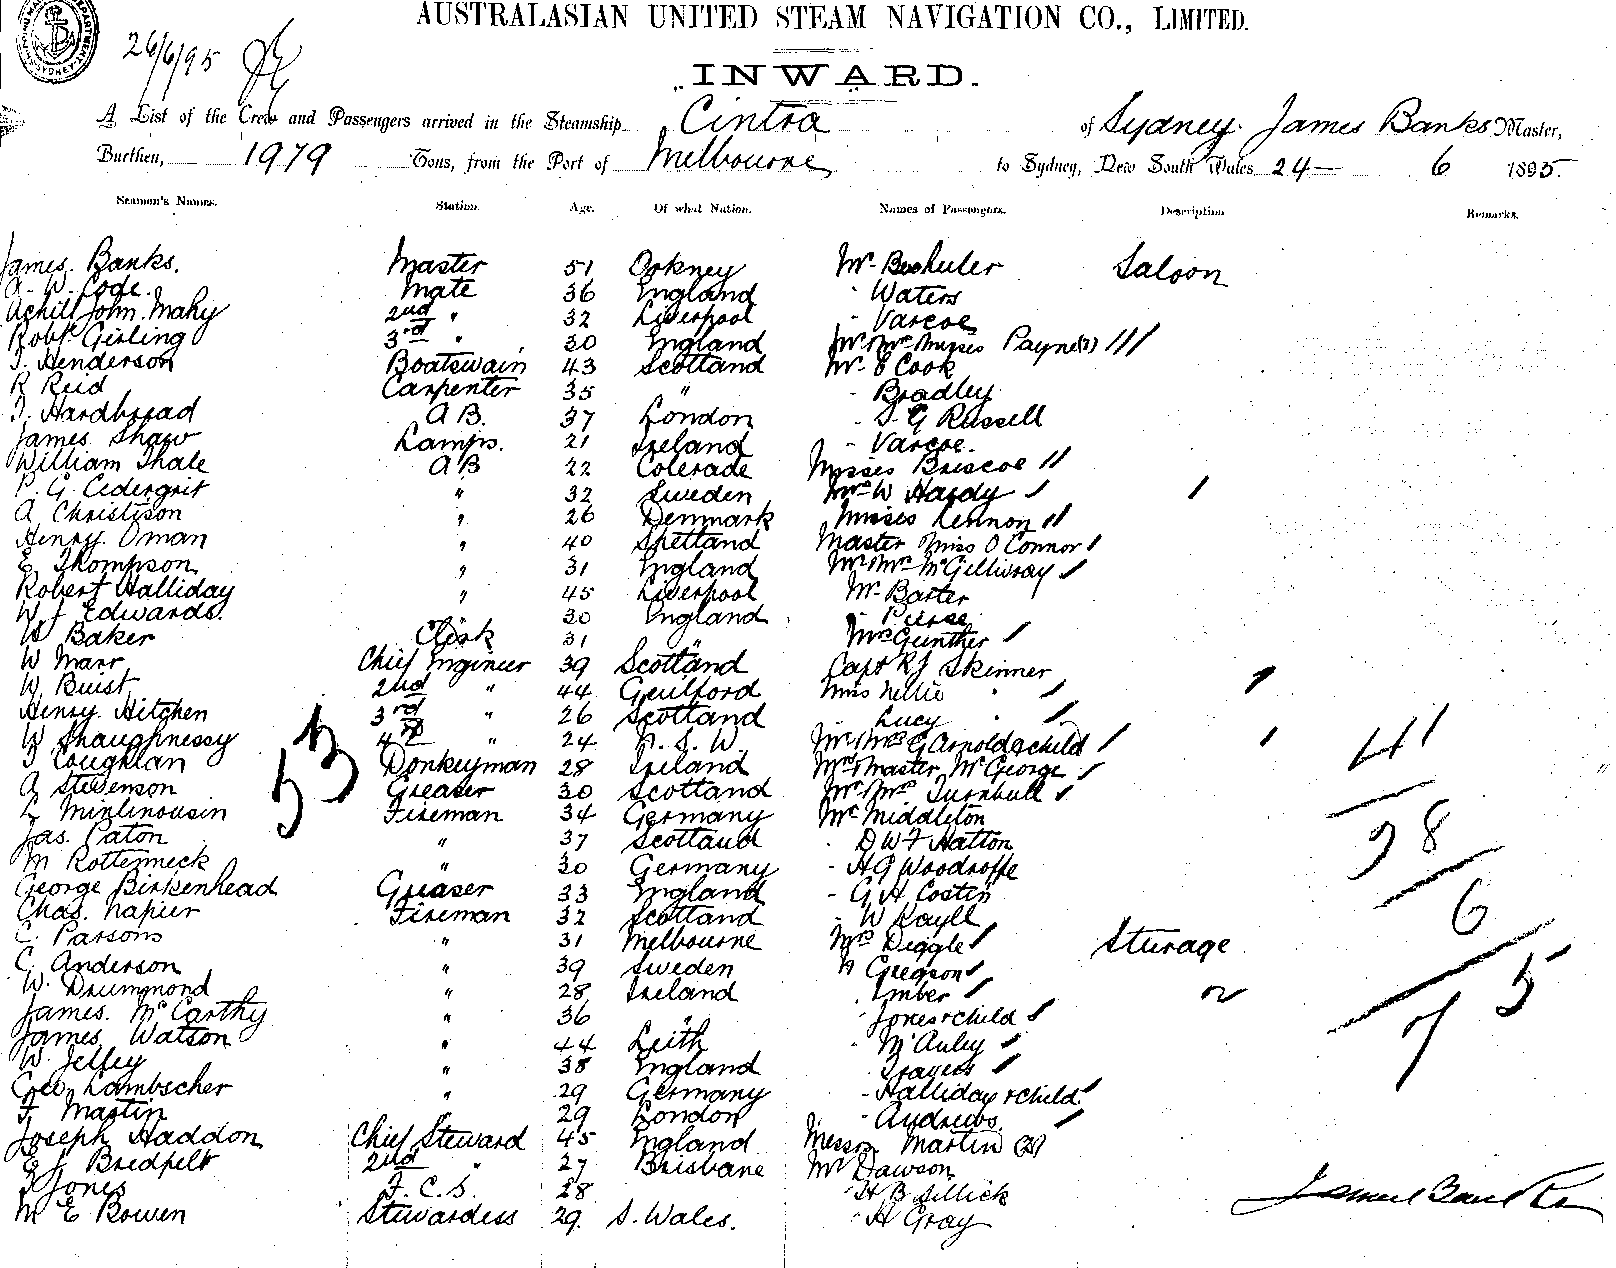 AUSTRALASIAN UNITED STEAM NAVIGATION CO., LIMITED.
26/6/95
INWARD.
A List of the Crew and Passengers arrived in the Steamship Cintra of Sydney. James Banks Master,
Burthen, 1979 Tons, from the Port of Melbourne to Sydney, New South Wales 24 6 1895.
Seamen's Names. Station. Age. Of what Nation. Names of Passengers. Description Remarks.
James. Banks. Master 51 Orkney Mr Saloon
W. Code. Mate 36 England " Waters
Achill John. Mahy 2nd " 32 Liverpool " Varcoe
Robt. Girling 3rd " 30 England Mr Mrs Misses Payne(3) ///
J. Henderson Boatswain 43 Scotland Mr. E Cook
R Reid Carpenter 35 " - Bradley
J. Hardbread A B. 37 London - S. G Russell
James Shaw Lamps. 21 Ireland - Varcoe.
William Thale A B 22 Colerade Misses Briscoe //
P. G. Cedergrit " 32 Sweden Mrs W Hardy / /
A Christison " 26 Denmark Misses Lennon //
Henry. Oman " 40 Shetland Master Miss O'Connor /
E Thompson " 31 England Mr Mrs McGillivray /
Robert Halliday " 45 Liverpool Mr. Barter
W. J Edwards. 30 England - Pierse
W Baker Clerk 31 " Mrs Gunther /
W Marr Chief Engineer 39 Scotland Capt R J Skinner
W. Buist 2nd " 44 Guilford Miss Nellie " /
Henry. Hitchen 3rd " 26 Scotland " Lucy " /
W Shaughnessy 4th " 24 N. S. W. Mr Mrs G Arnold & child /
J Coughlan Donkeyman 28 Ireland Mrs Master McGeorge /
A Stevenson Greaser 30 Scotland Mr Mrs Turnbull /
L Minlinousin Fireman 34 Germany Mr Middleton
Jas. Paton " 37 Scotland . D W F Hatton
M Rottenneck " 30 Germany - H G Woodroffe
George Birkenhead Greaser 33 England - G H Costin
Chas. Napier Fireman 32 Scotland - W Kayll
C. Parsons " 31 Melbourne Mrs Diggle / Sturage
C. Anderson " 39 Sweden " Gregson /
W. Drummond " 28 Ireland - Imber /
James. McCarthy " 36 " - Jones & child /
James Watson " 44 Leith - McAuley /
W. Jelley " 38 England - Travers /
Geo. Lambscher " 29 Germany - Halliday & child /
F. Martin 29 London - Andrews. /
Joseph Haddon Chief Steward 45 England Messrs Martin (2)
E J. Bredfelt 2nd " 27 Brisbane Mr Dawson
J Jones F. C. S. 28 " H B Sillick
M E Bowen Stewardess 29 S. Wales. " H Gray
53
41
28
6
75
James Banks